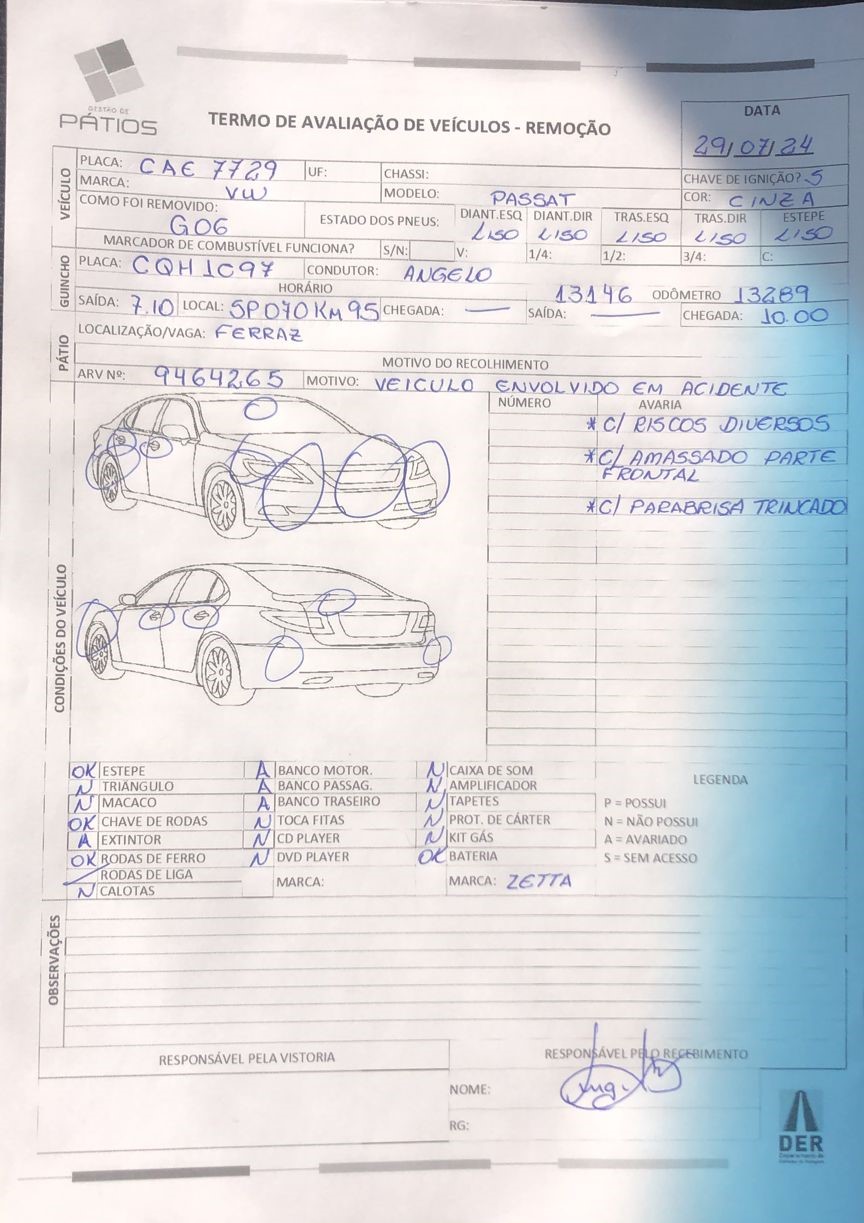 GESTÃO DE
PÁTIOS
TERMO DE AVALIAÇÃO DE VEÍCULOS - REMOÇÃO
DATA
29/07/24
VEÍCULO
PLACA: CAE 7729 UF: CHASSI: CHAVE DE IGNIÇÃO? S
MARCA: VW MODELO: PASSAT COR: CINZA
COMO FOI REMOVIDO: G06 ESTADO DOS PNEUS: DIANT.ESQ DIANT.DIR TRAS.ESQ TRAS.DIR ESTEPE
LISO LISO LISO LISO LISO
MARCADOR DE COMBUSTÍVEL FUNCIONA? S/N: V: 1/4: 1/2: 3/4: C:
GUINCHO
PLACA: CQH 1C97 CONDUTOR: ANGELO
HORÁRIO 13146 ODÔMETRO 13289
SAÍDA: 7.10 LOCAL: SP070 KM 95 CHEGADA: — SAÍDA: — CHEGADA: 10.00
PÁTIO
LOCALIZAÇÃO/VAGA: FERRAZ
MOTIVO DO RECOLHIMENTO
ARV Nº: 9464265 MOTIVO: VEICULO ENVOLVIDO EM ACIDENTE
CONDIÇÕES DO VEÍCULO
NÚMERO AVARIA
* C/ RISCOS DIVERSOS
* C/ AMASSADO PARTE
FRONTAL
* C/ PARABRISA TRINCADO
OK ESTEPE A BANCO MOTOR. N CAIXA DE SOM LEGENDA
N TRIÂNGULO A BANCO PASSAG. N AMPLIFICADOR
N MACACO A BANCO TRASEIRO N TAPETES P = POSSUI
OK CHAVE DE RODAS N TOCA FITAS N PROT. DE CÁRTER N = NÃO POSSUI
A EXTINTOR N CD PLAYER N KIT GÁS A = AVARIADO
OK RODAS DE FERRO N DVD PLAYER OK BATERIA S = SEM ACESSO
RODAS DE LIGA MARCA: MARCA: ZETTA
N CALOTAS
OBSERVAÇÕES
RESPONSÁVEL PELA VISTORIA RESPONSÁVEL PELO RECEBIMENTO
NOME:
RG:
DER